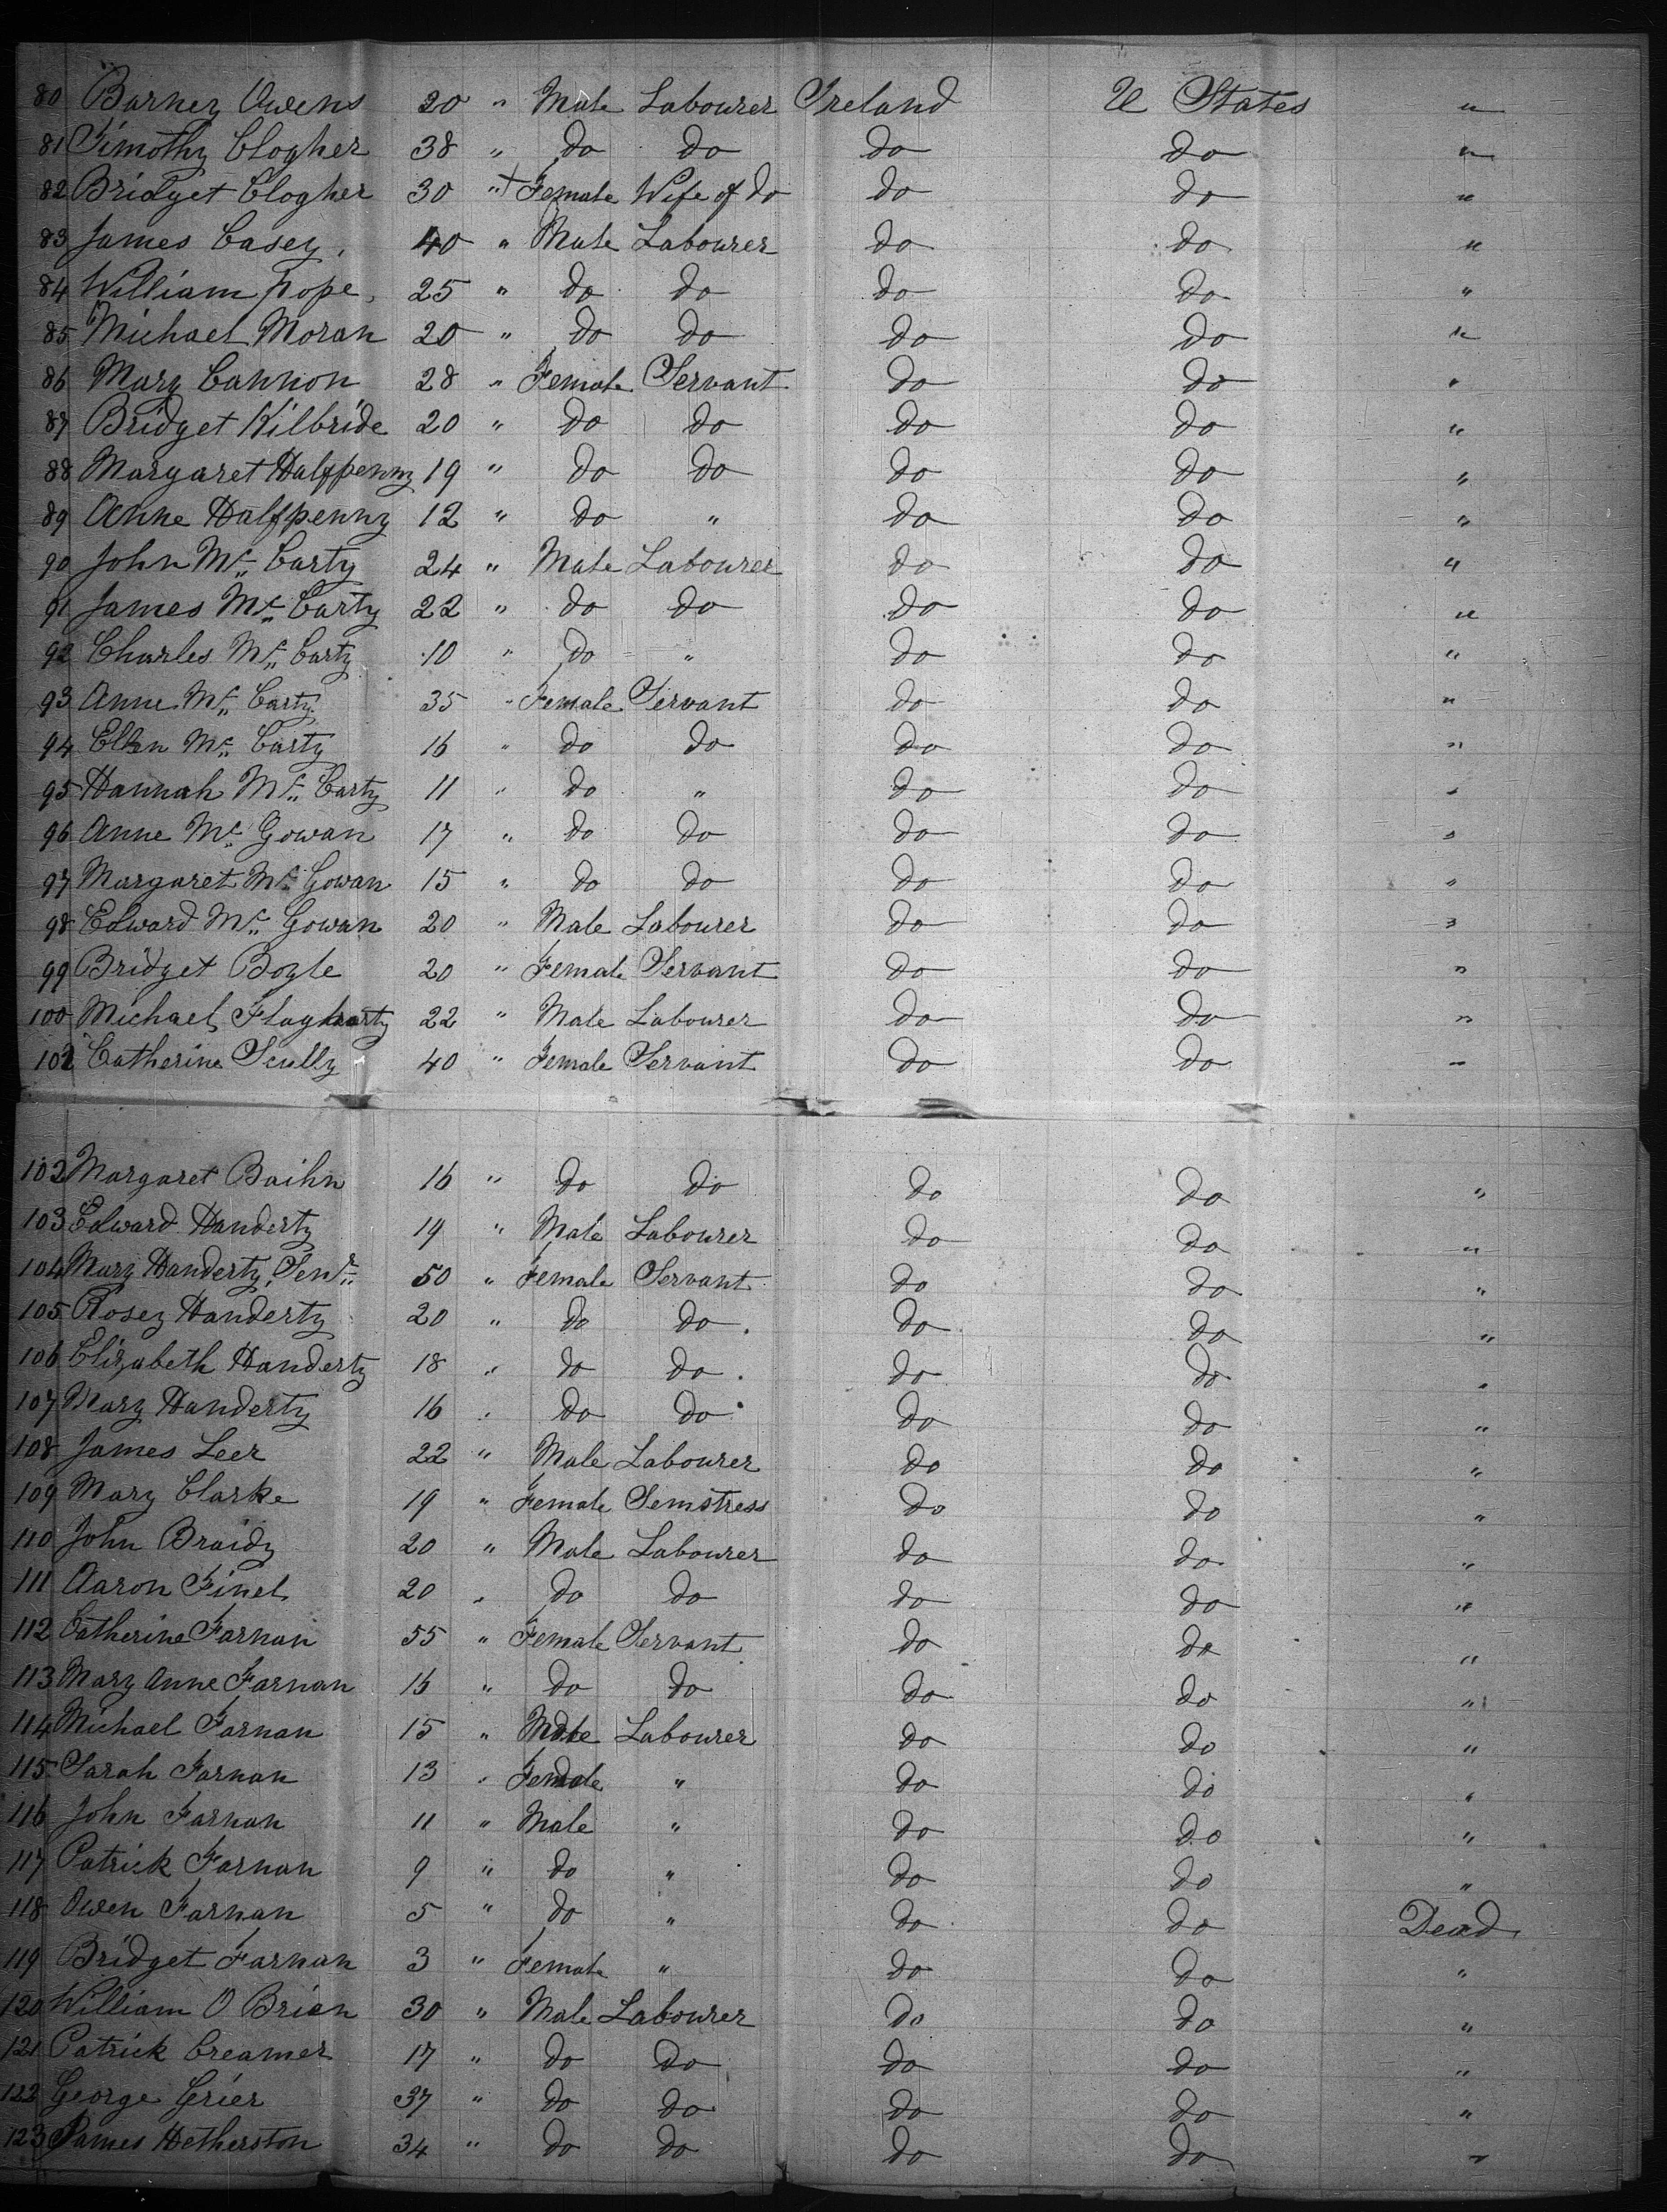 80 Barney Owens 20 " Male Labourer Ireland U States "
81 Timothy Clogher 38 " do do do do "
82 Bridget Clogher 30 " + Female Wife of do do do "
83 James Casey 40 " Male Labourer do do "
84 William Pope 25 " do do do do "
85 Michael Moran 20 " do do do do "
86 Mary Cannon 28 " Female Servant do do "
87 Bridget Kilbride 20 " do do do do "
88 Margaret Halfpenny 19 " do do do do "
89 Anne Halfpenny 12 " do " do do "
90 John Mc Carty 24 " Male Labourer do do "
91 James Mc Carty 22 " do do do do "
92 Charles Mc Carty 10 " do " do do "
93 Anne Mc Carty 35 " Female Servant do do "
94 Ellen Mc Carty 16 " do do do do "
95 Hannah Mc Carty 11 " do " do do "
96 Anne Mc Gowan 17 " do do do do "
97 Margaret Mc Gowan 15 " do do do do "
98 Edward Mc Gowan 20 " Male Labourer do do "
99 Bridget Boyle 20 " Female Servant do do "
100 Michael Flagharty 22 " Male Labourer do do "
101 Catherine Scully 40 " Female Servant do do "
102 Margaret Baihn 16 " do do do do "
103 Edward Handerty 19 " Male Labourer do do "
104 Mary Handerty, Senr 50 " Female Servant do do "
105 Rosey Handerty 20 " do do do do "
106 Elizabeth Handerty 18 " do do do do "
107 Mary Handerty 16 " do do do do "
108 James Leer 22 " Male Labourer do do "
109 Mary Clarke 19 " Female Semstress do do "
110 John Braidy 20 " Male Labourer do do "
111 Aaron Finel 20 " do do do do "
112 Catherine Farnan 55 " Female Servant do do "
113 Mary Anne Farnan 16 " do do do do "
114 Michael Farnan 15 " Male Labourer do do "
115 Sarah Farnan 13 " Female " do do "
116 John Farnan 11 " Male " do do "
117 Patrick Farnan 9 " do " do do "
118 Owen Farnan 5 " do " do do Dead
119 Bridget Farnan 3 " Female " do do "
120 William O Brien 30 " Male Labourer do do "
121 Patrick Creamer 17 " do do do do "
122 George Grier 37 " do do do do "
123 James Hetherston 34 " do do do do "